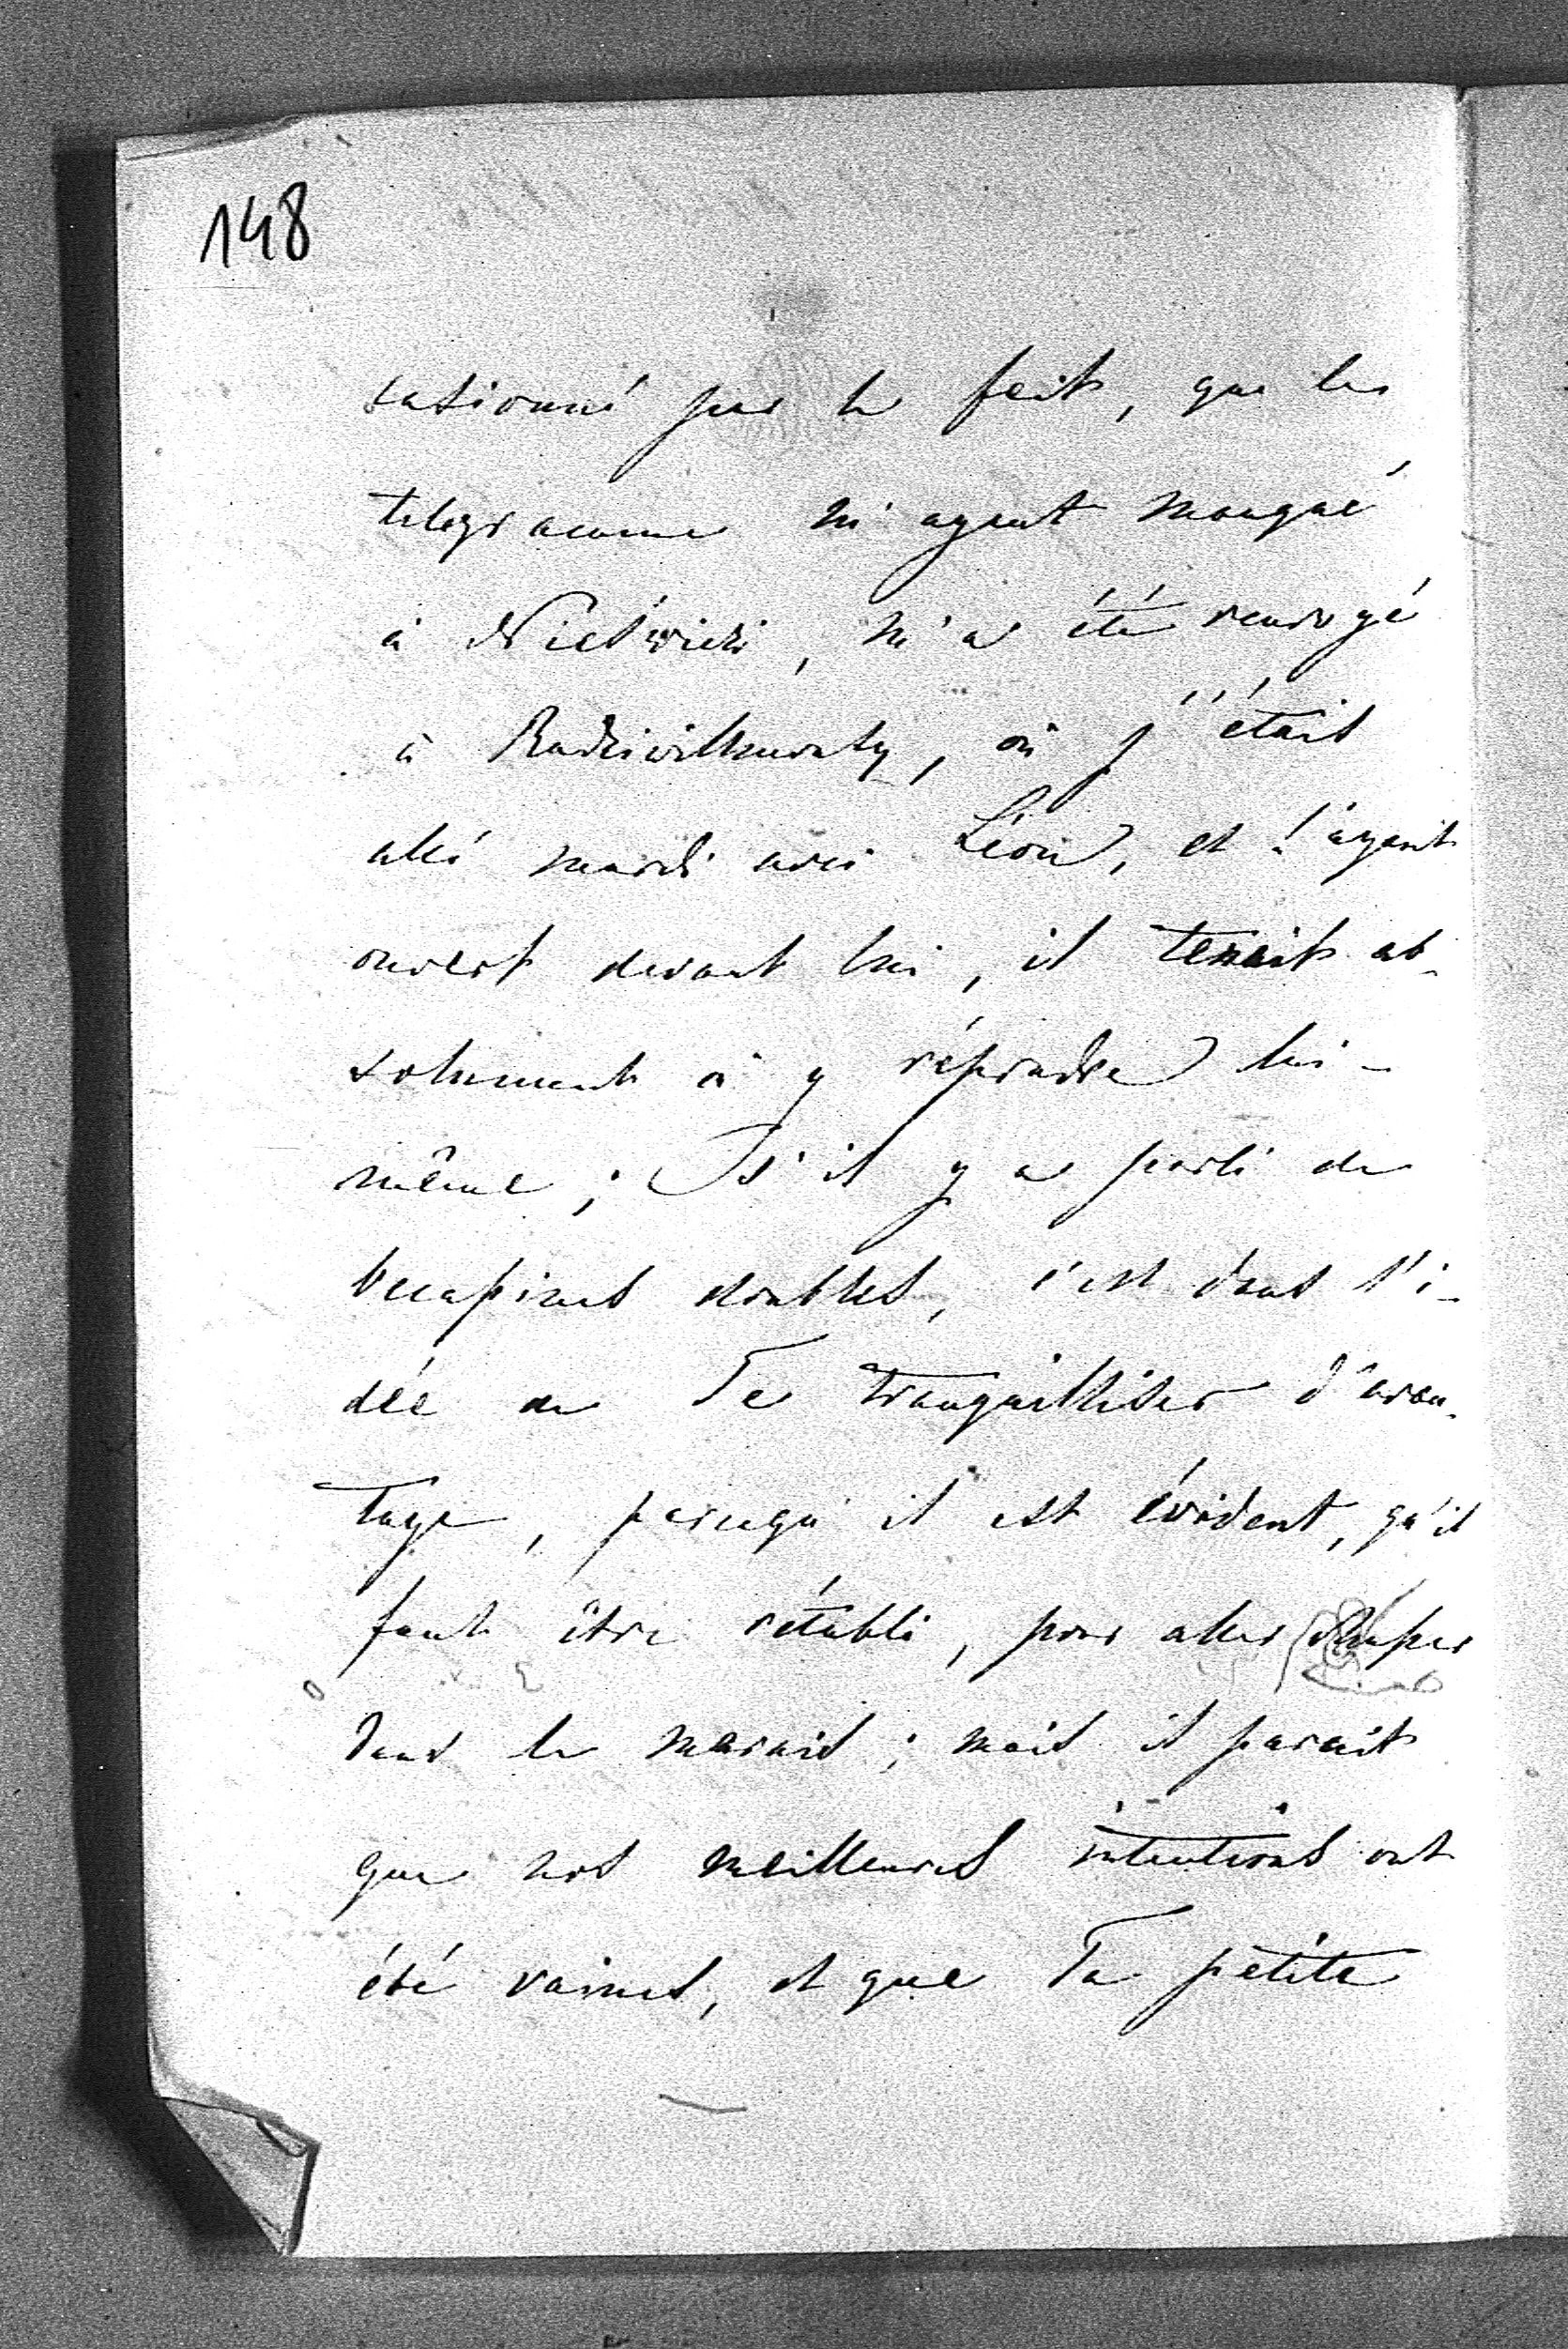 148
casionné par le fait, que le
telegramme m'ayant manqué
à Nieśwież, m'a été renvoyé
à Radziwillmonty, où j'étais
allé mardi avec Léon, et l'ayant
ouvert devant lui, il tenait ab-
solument à y répondre lui-
même; S'il y a parlé de
becassines doubles, c'est dans l'i-
dée de Te tranquilliser d'avan-
tage, parcequ'il est évident, qu'il
faut être rétabli, pour aller
dans le marais; mais il parait
que nos meilleures intentions ont
été vaines, et que Ta petite